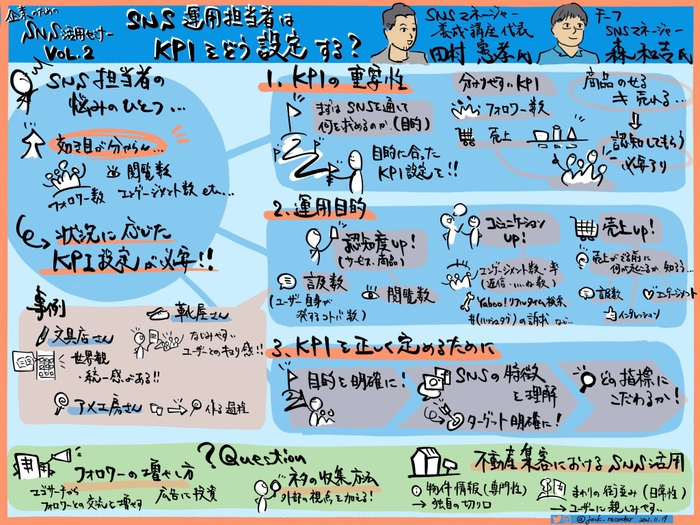 企業のための
SNS活用セミナー
VOL.2
SNS運用担当者は
KPIをどう設定する?
SNSマネージャー
養成講座代表
田村憲孝氏
チーフ
SNSマネージャー
森和吉氏
SNS担当者の
悩みのひとつ...
効果が分からん...
閲覧数
フォロワー数
エンゲージメント数 etc...
状況に応じた
KPI設定が必要!!
1. KPIの重要性
まずはSNSを通じて
何を求めるのか(目的)
目的に合った
KPI設定を!!
分かりやすいKPI
フォロワー数
売上
商品のせる
売れる...
認知してもらう
必要あり
2. 運用目的
認知度up!
(サービス、商品)
言及数
(ユーザー自身が
発するコトバ数)
閲覧数
コミュニケーション
up!
エンゲージメント数・率
(返信・いいね数)
Yahoo!リアルタイム検索
#(ハッシュタグ)の言及 など...
売上up!
売上が上がる前に
何が起こるか知ろう...
言及数
エンゲージメント
インプレッション
事例
文具店さん
世界観
・統一感がある!!
靴屋さん
なじみやすい
ユーザーとのキョリ感!!
アメ工房さん
作る過程
3. KPIを正しく定めるために
目的を明確に!
SNSの特徴
を理解
ターゲット明確に!
どの指標に
こだわるか!
? Question
フォロワーの増やし方
ユーザーから
フォロワーとの交流を増やす
広告に投資
ネタの収集方法
外部の視点を加える!
不動産集客におけるSNS活用
物件情報(専門性)
→独自の切り口
まわりの街並み(日常性)
→ユーザーに親しみやすい...
2021.11.17